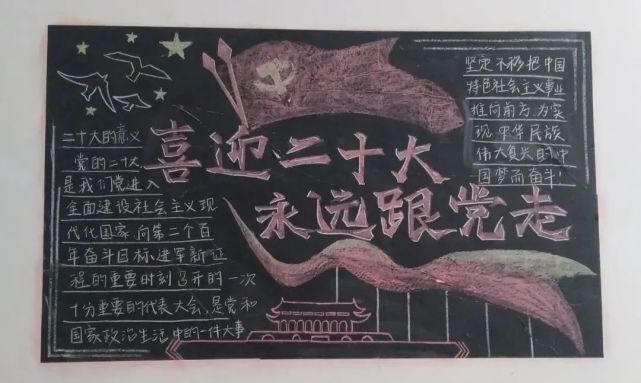 喜迎二十大
永远跟党走
二十大的意义
党的二十大
是我们党进入
全面建设社会主义现
代化国家,向第二个百
年奋斗目标进军新征
程的重要时刻召开的一次
十分重要的代表大会,是党和
国家政治生活中的一件大事
坚定不移把中国
特色社会主义事业
推向前方,为实
现中华民族
伟大复兴的中
国梦而奋斗!